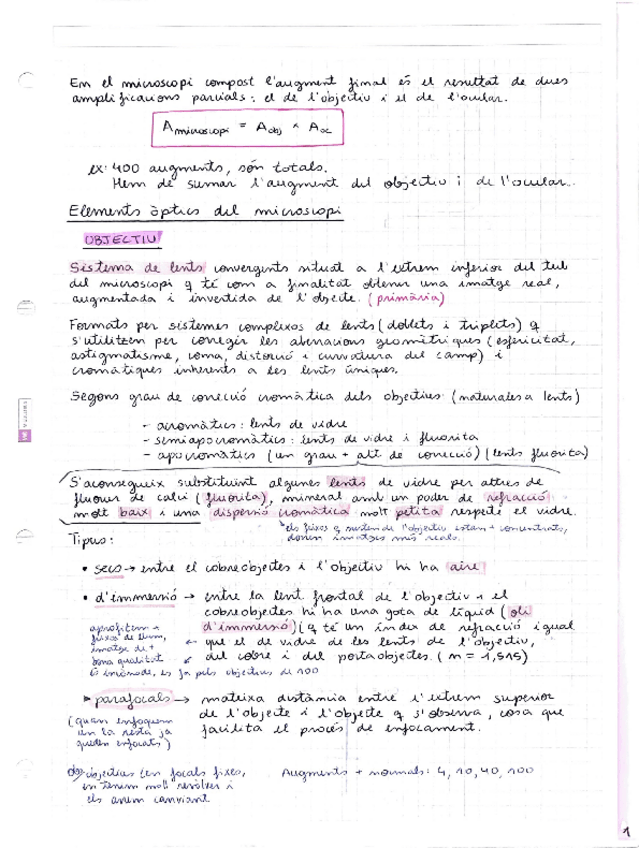 En el microscopi compost l'augment final és el resultat de dues
amplificacions parcials: el de l'objectiu i el de l'ocular.
Amicroscopi = Aobj × Aoc
ex: 400 augments, són totals.
Hem de sumar l'augment del objectiu i de l'ocular.
Elements òptics del microscopi
OBJECTIU
Sistema de lents convergents situat a l'extrem inferior del tub
del microscopi q té com a finalitat obtenir una imatge real,
augmentada i invertida de l'objecte. (primària)
Formats per sistemes complexos de lents (doblets i triplets) q
s'utilitzen per corregir les aberracions geomètriques (esfericitat,
astigmatisme, coma, distorció i curvatura del camp) i
cromàtiques inherents a les lents úniques.
Segons grau de correcció cromàtica dels objectius: (naturalesa lents)
- acromàtics: lents de vidre
- semiapocromàtics: lents de vidre i fluorita
- apocromàtics (un grau + alt de correció) (lents fluorita)
S'aconsegueix substituint algunes lents de vidre per altres de
fluorur de calci (fluorita), mineral amb un poder de refracció
molt baix i una dispersió cromàtica molt petita respecte el vidre.
els feixos q surten de l'objectiu estan + concentrats,
donen imatges més reals.
Tipus:
• secs → entre el cobreobjectes i l'objectiu hi ha aire
• d'immersió → entre la lent frontal de l'objectiu i el
cobreobjectes hi ha una gota de líquid (oli
d'immersió) (q té un índex de refracció igual
que el de vidre de les lents de l'objectiu,
del cobre i del portaobjectes. (n = 1,515)
aprofitem +
feixos de llum,
imatge de +
bona qualitat
És incòmode, es fa pels objectius de 100
➤ parafocals → mateixa distància entre l'extrem superior
de l'objecte i l'objecte q s'observa, cosa que
facilita el procés de enfocament.
(quan enfoquem
en la resta ja
queden enfocats)
obj objectius len focals fixes,
en tenim molt revòlver i
els anem canviant
Augments + normals: 4, 10, 40, 100
1